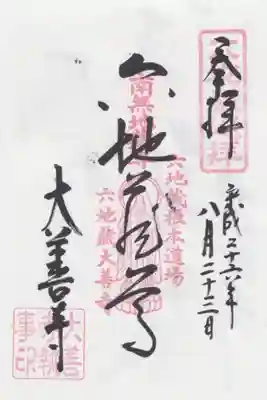 奉拝
平成二十六年
八月二十三日
六地蔵尊
南無地
六地蔵根本道場
六地蔵大善寺
大善寺